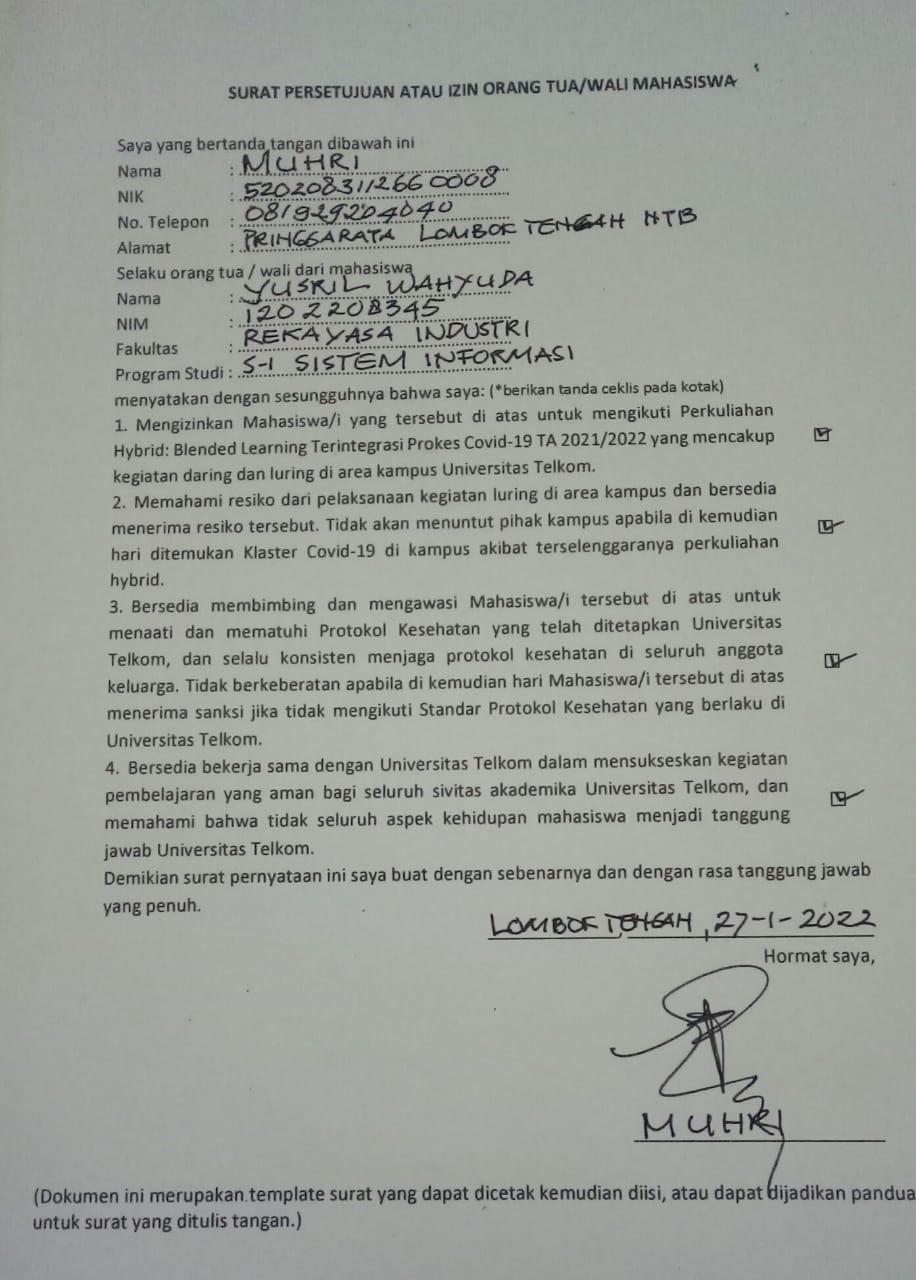 SURAT PERSETUJUAN ATAU IZIN ORANG TUA/WALI MAHASISWA
Saya yang bertanda tangan dibawah ini
Nama : MUHRI
NIK : 5202083112660008
No. Telepon : 081929204040
Alamat : PRINGGARATA LOMBOK TENGAH NTB
Selaku orang tua / wali dari mahasiswa
Nama : YUSRIL WAHYUDA
NIM : 1202208345
Fakultas : REKAYASA INDUSTRI
Program Studi : S-1 SISTEM INFORMASI
menyatakan dengan sesungguhnya bahwa saya: (*berikan tanda ceklis pada kotak)
1. Mengizinkan Mahasiswa/i yang tersebut di atas untuk mengikuti Perkuliahan
Hybrid: Blended Learning Terintegrasi Prokes Covid-19 TA 2021/2022 yang mencakup
kegiatan daring dan luring di area kampus Universitas Telkom.
2. Memahami resiko dari pelaksanaan kegiatan luring di area kampus dan bersedia
menerima resiko tersebut. Tidak akan menuntut pihak kampus apabila di kemudian
hari ditemukan Klaster Covid-19 di kampus akibat terselenggaranya perkuliahan
hybrid.
3. Bersedia membimbing dan mengawasi Mahasiswa/i tersebut di atas untuk
menaati dan mematuhi Protokol Kesehatan yang telah ditetapkan Universitas
Telkom, dan selalu konsisten menjaga protokol kesehatan di seluruh anggota
keluarga. Tidak berkeberatan apabila di kemudian hari Mahasiswa/i tersebut di atas
menerima sanksi jika tidak mengikuti Standar Protokol Kesehatan yang berlaku di
Universitas Telkom.
4. Bersedia bekerja sama dengan Universitas Telkom dalam mensukseskan kegiatan
pembelajaran yang aman bagi seluruh sivitas akademika Universitas Telkom, dan
memahami bahwa tidak seluruh aspek kehidupan mahasiswa menjadi tanggung
jawab Universitas Telkom.
Demikian surat pernyataan ini saya buat dengan sebenarnya dan dengan rasa tanggung jawab
yang penuh.
LOMBOK TENGAH, 27-1-2022
Hormat saya,
MUHRI
(Dokumen ini merupakan template surat yang dapat dicetak kemudian diisi, atau dapat dijadikan pandua
untuk surat yang ditulis tangan.)